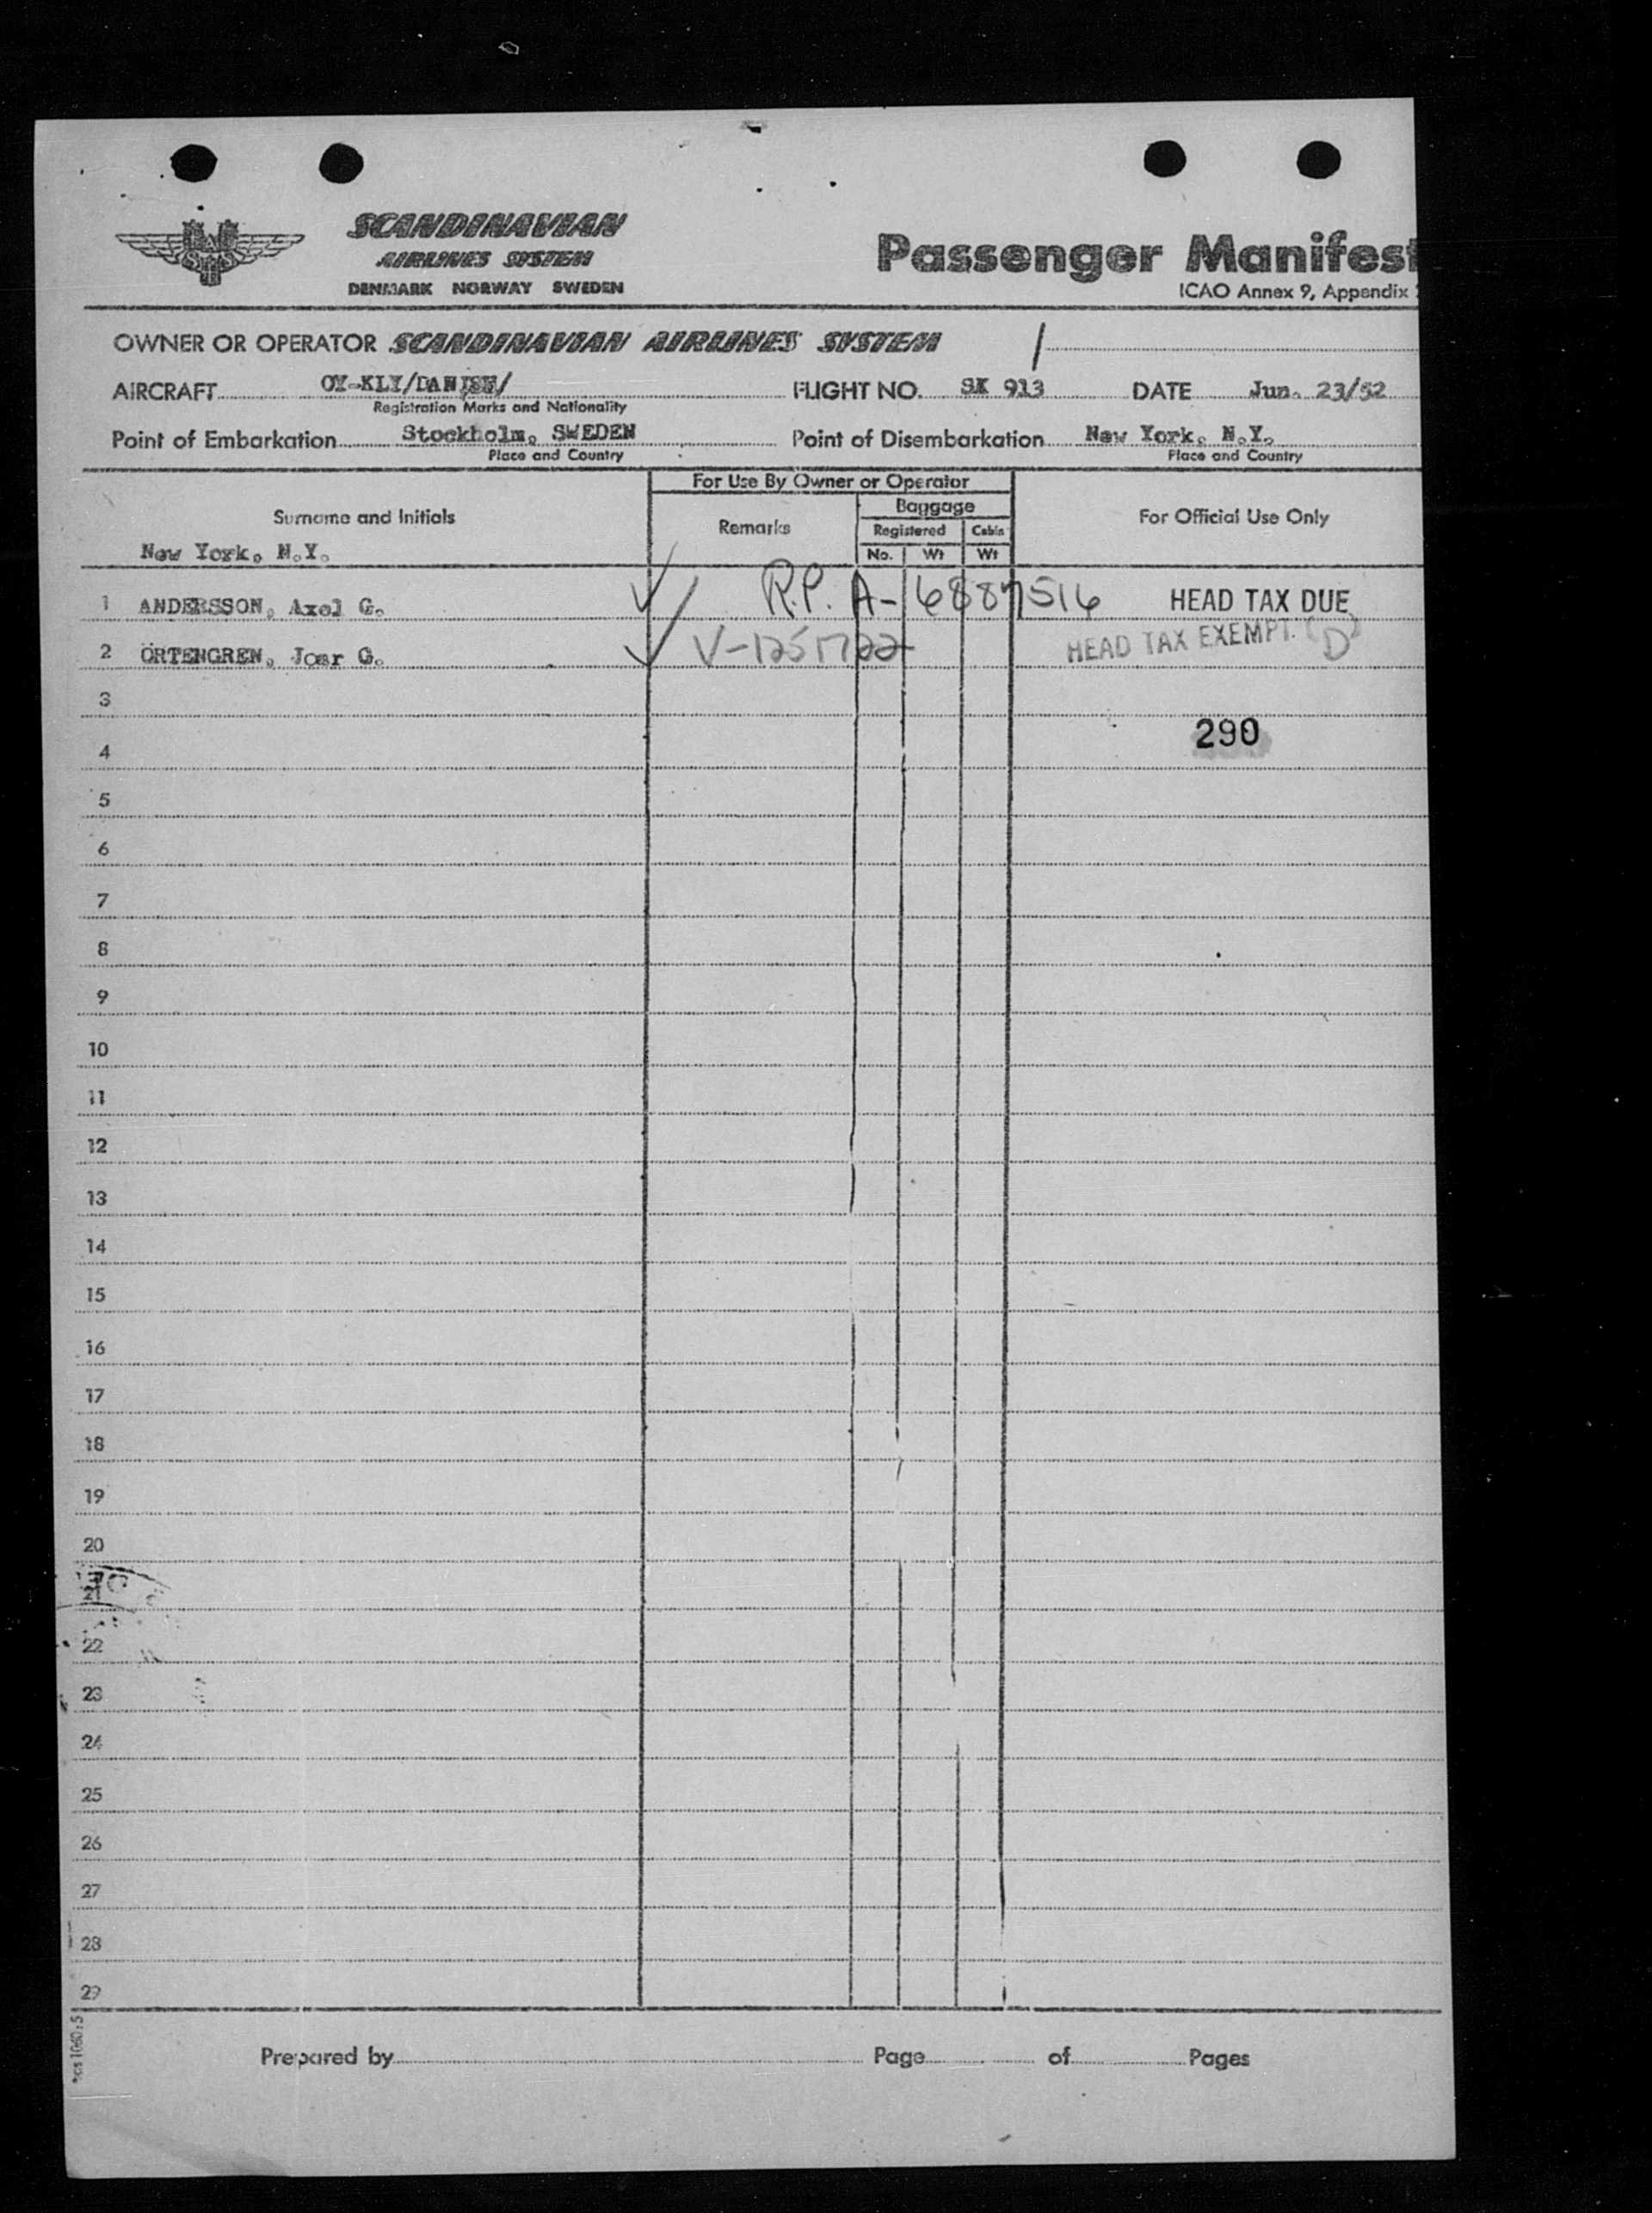 SCANDINAVIAN
AIRLINES SYSTEM
DENMARK NORWAY SWEDEN
Passenger Manifest
ICAO Annex 9, Appendix
OWNER OR OPERATOR SCANDINAVIAN AIRLINES SYSTEM
AIRCRAFT OY-KLY/DANISH/ FLIGHT NO. SK 913 DATE Jun. 23/52
Registration Marks and Nationality
Point of Embarkation Stockholm, SWEDEN Point of Disembarkation New York, N.Y.
Place and Country Place and Country
For Use By Owner or Operator
Surname and Initials Remarks Baggage For Official Use Only
Registered Cabin
New York, N.Y. No. Wt Wt
1 ANDERSSON, Axel G. R.P. A-6887516 HEAD TAX DUE
2 ÖRTENGREN, Joar G. V-1251722 HEAD TAX EXEMPT. (D)
3
290
4
5
6
7
8
9
10
11
12
13
14
15
16
17
18
19
20
21
22
23
24
25
26
27
28
29
Prepared by Page of Pages